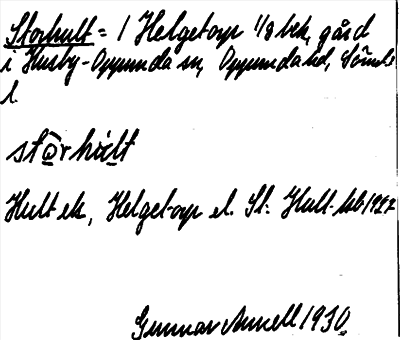 Storhult = 1 Helgetorp 1/8 bek, gård
i Husby-Oppunda sn, Oppunda hd, Söml.
l.
Hult ek, Helgetorp el. St: Hult. hb 1927
Gunnar Annell 1930.